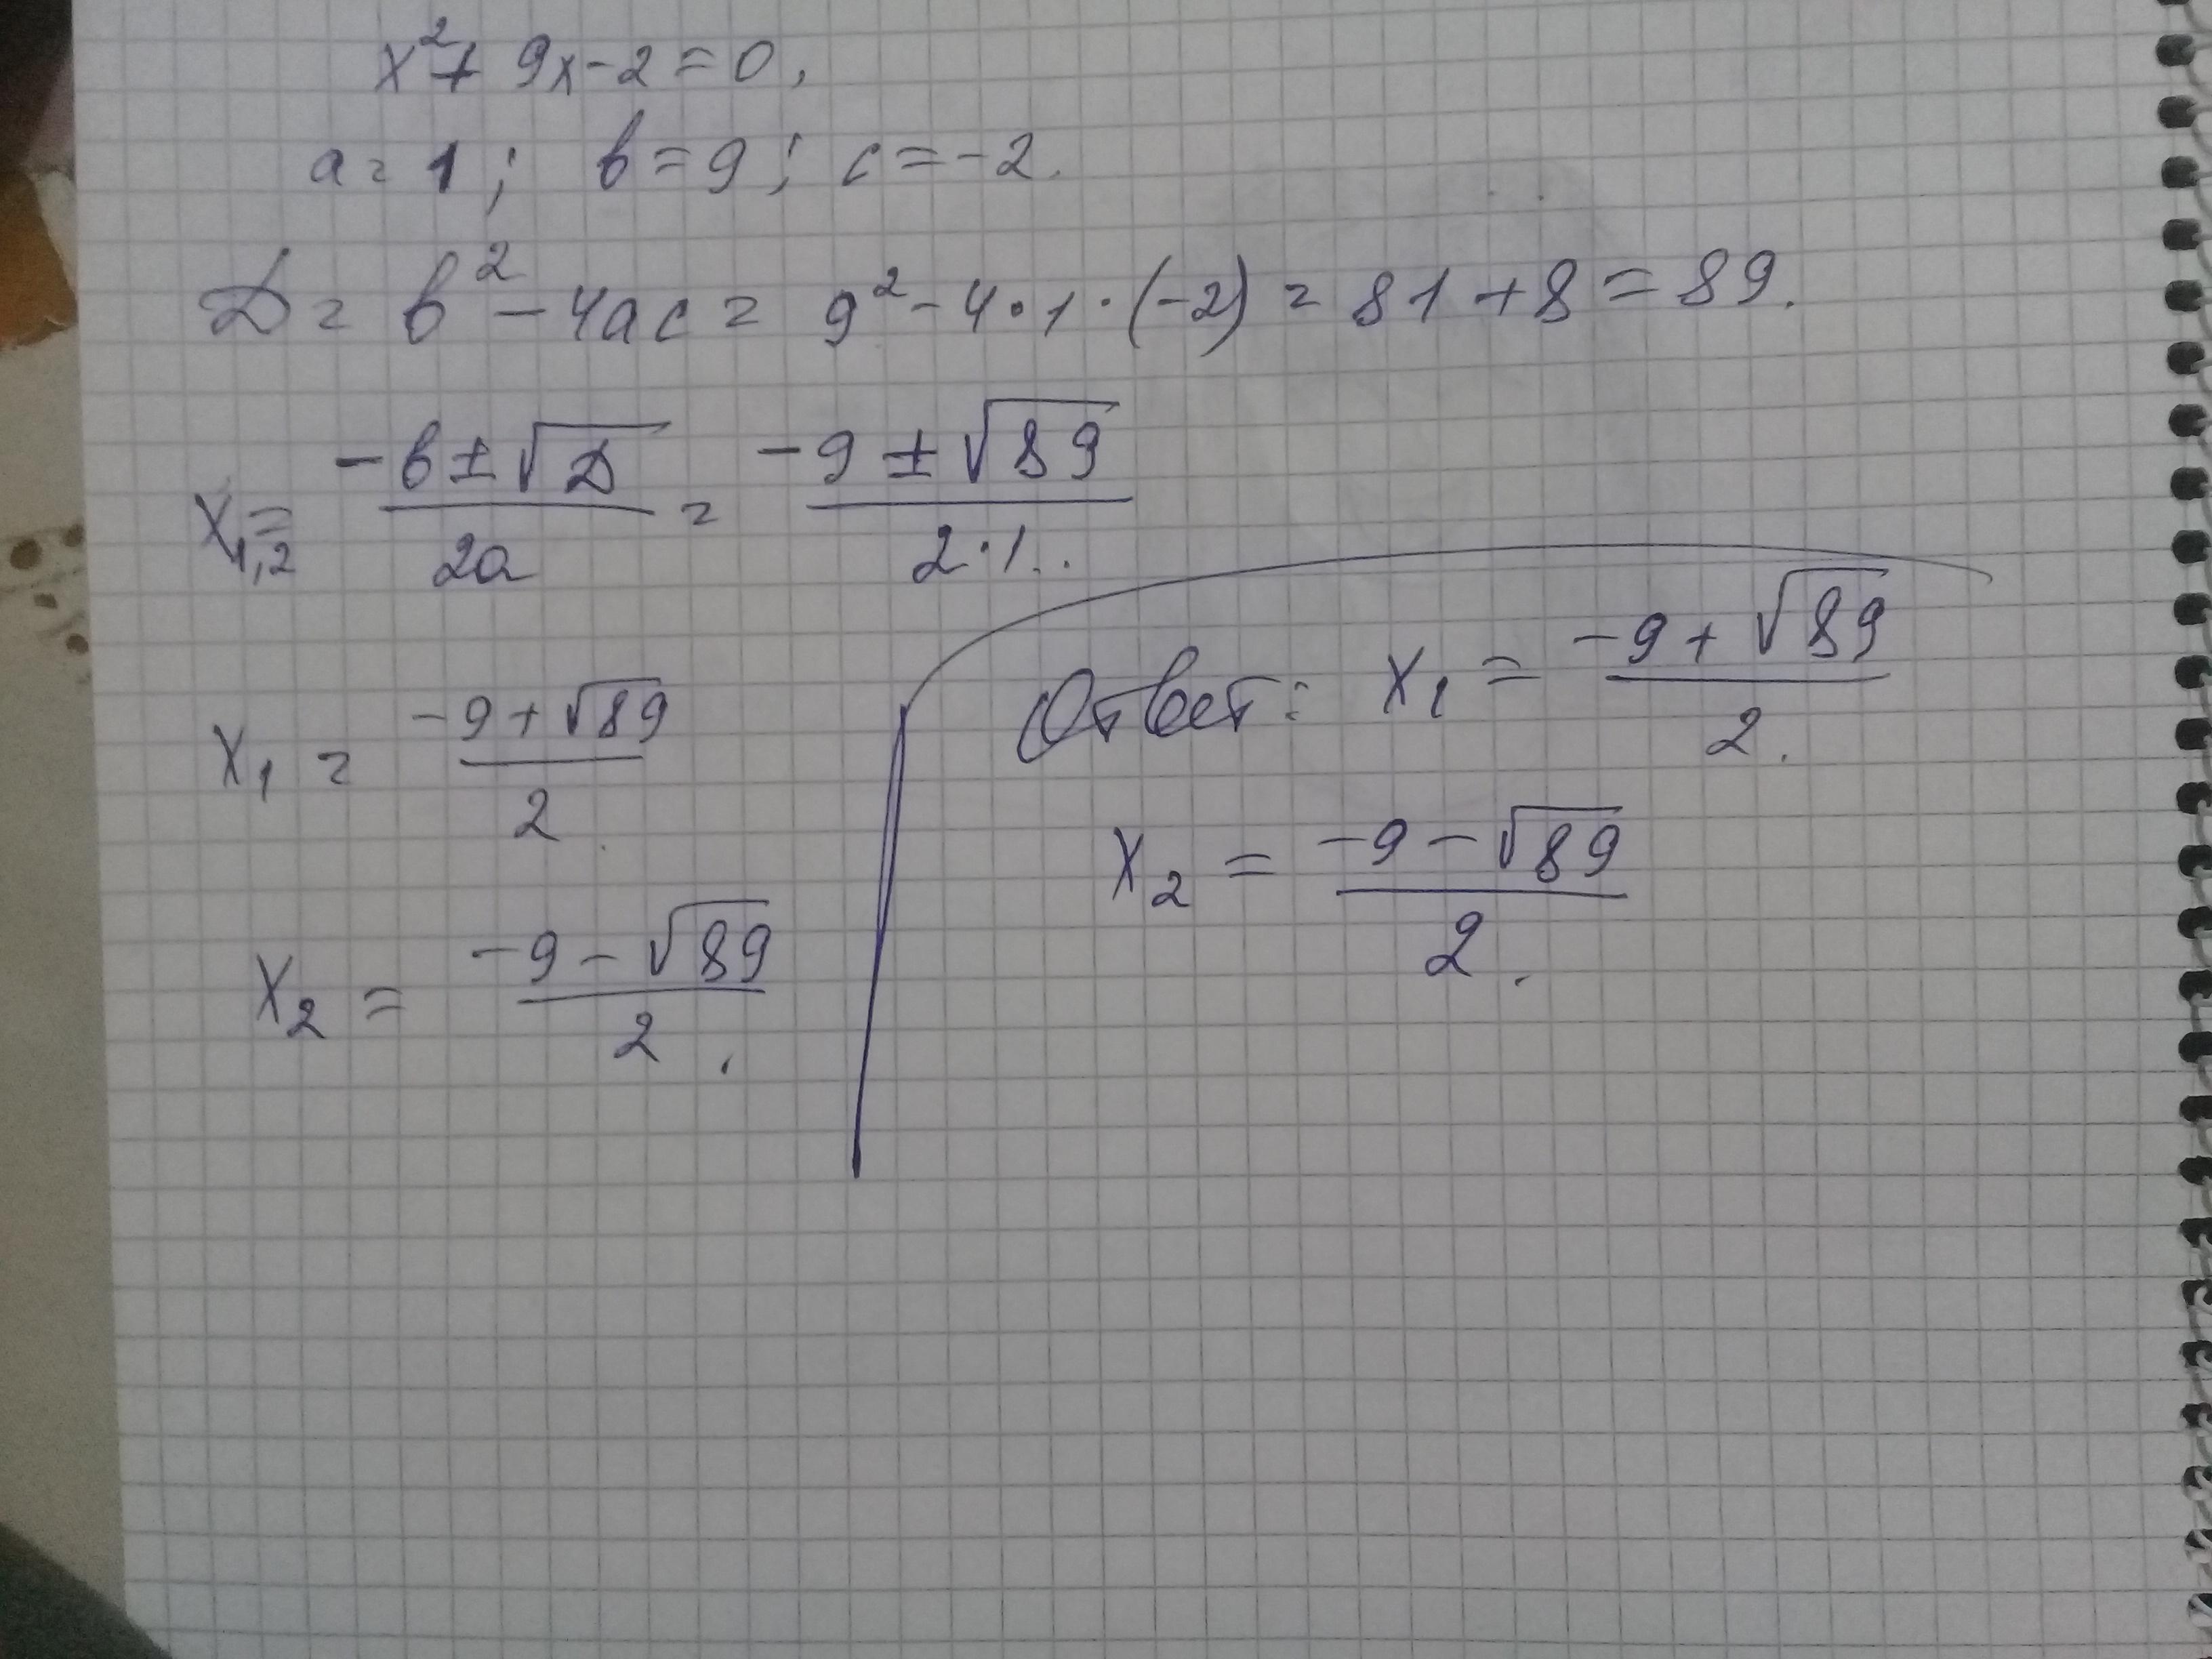 x² + 9x - 2 = 0,
a = 1; b = 9; c = -2.
D = b² - 4ac = 9² - 4·1·(-2) = 81 + 8 = 89.
x₁,₂ = (-b ± √D)/(2a) = (-9 ± √89)/(2·1.
x₁ = (-9 + √89)/2
x₂ = (-9 - √89)/2.
Ответ: x₁ = (-9 + √89)/2.
x₂ = (-9 - √89)/2.